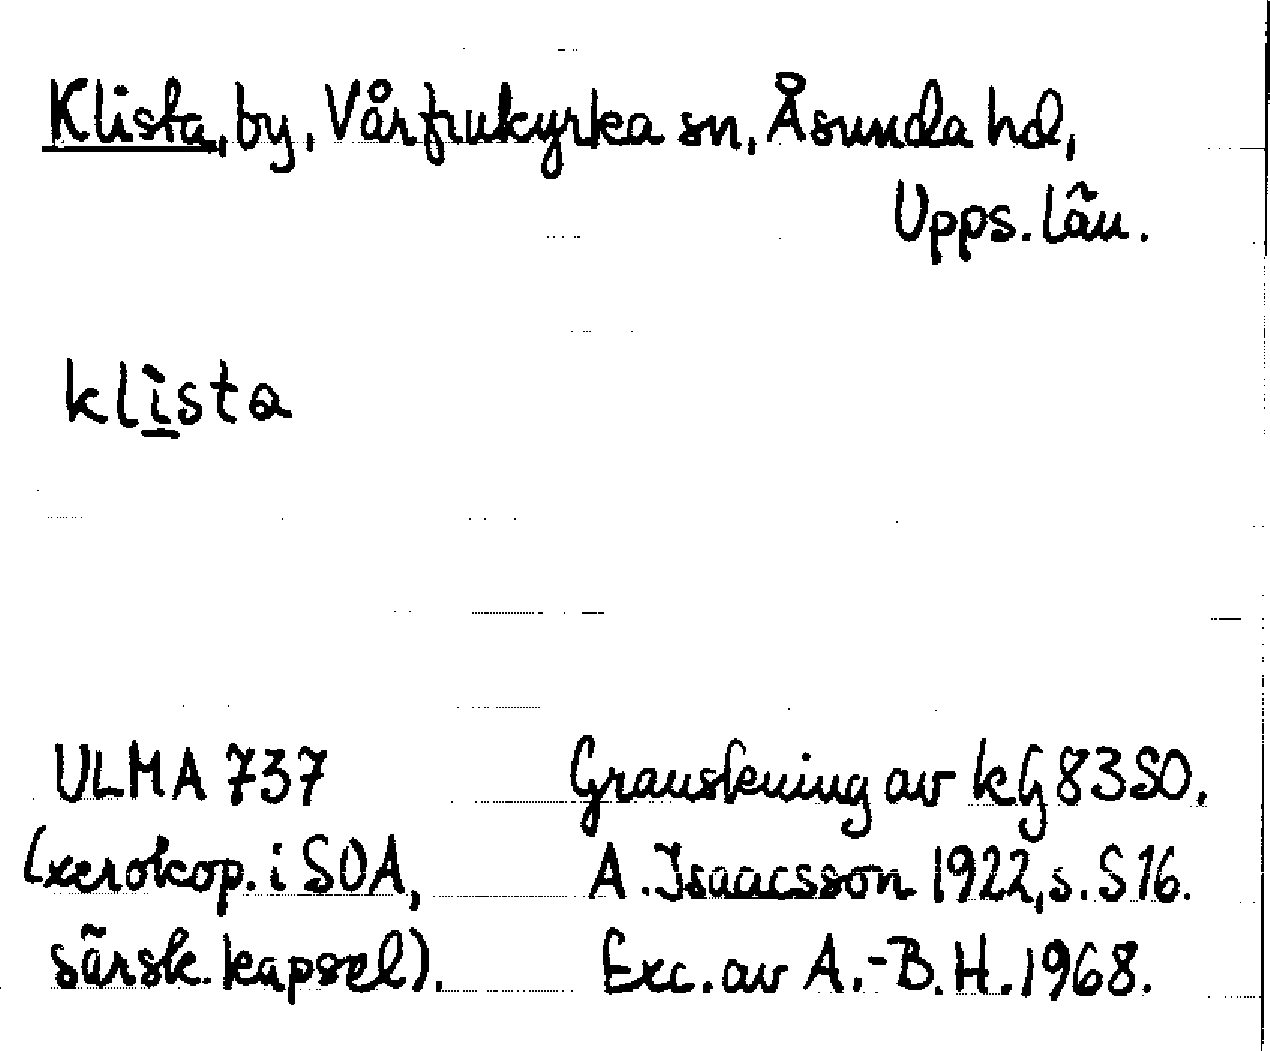 Klista, by, Vårfrukyrka sn, Åsunda hd,
Upps. län.
klìsta
ULMA 737
(xerokop. i SOA,
särsk. kapsel).
Granskning av kG 83SO.
A. Isaacsson 1922, s. S 16.
Exc. av A.-B.H. 1968.